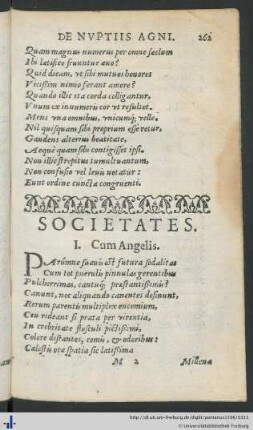 DE NVPTIIS AGNI. 262
Quam magnus numerus per omne sæclum
Ibi lætifico fruuntur æuo?
Quid dicam, vt sibi mutuos honores
Vicissim nimio ferant amore?
Quando illic ita corda colligantur,
Vnum ex innumeris cor vt resultet.
Mens vna omnibus, vnicumq́; velle.
Nil quisquam sibi proprium esse retur,
Gaudens alterius beatitate,
Aequè quam sibi contigisset ipsi.
Non illic strepitus tumultuantum,
Non confusio vel leuis notatur:
Eunt ordine cuncta congruenti.
SOCIETATES.
I. Cum Angelis.
PArúmne suauis est futura sodalitas
Cum tot puerulis pinnulas gerentibus
Pulcherrimas, cantuq́; præstantissimis?
Canunt, nec aliquando canentes desinunt,
Rerum parentis multiplex encomium,
Ceu rideant si prata per virentia,
In crebritate flosculi pictissimi,
Colore distantes, comis, & odoribus:
Cælestis oræ spatia sic latissima
M 2 Millena
http://dl.ub.uni-freiburg.de/diglit/pontanus1594/0311
© Universitätsbibliothek Freiburg